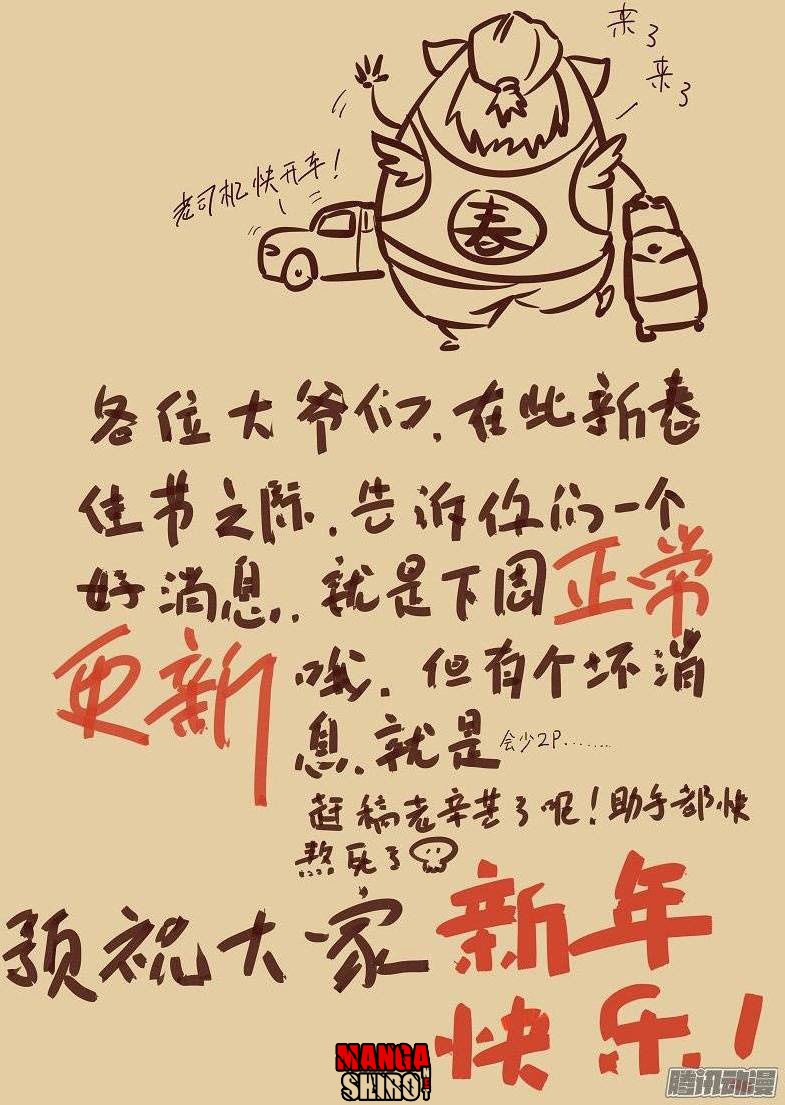 来了
来了
老司机快开车!
春
各位大爷们,在此新春
佳节之际,告诉你们一个
好消息,就是下周正常
更新哦,但有个坏消
息,就是会少2P.......
赶稿老辛苦了呢!助手都快
熬死了
预祝大家新年
快乐!
MANGA
SHIRO.NET
腾讯动漫